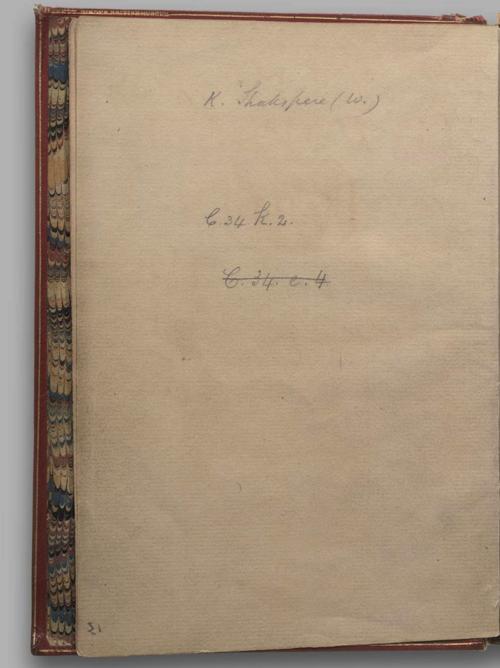 K. Shakspere (W.)
C.34 K.2.
C. 34. c. 4